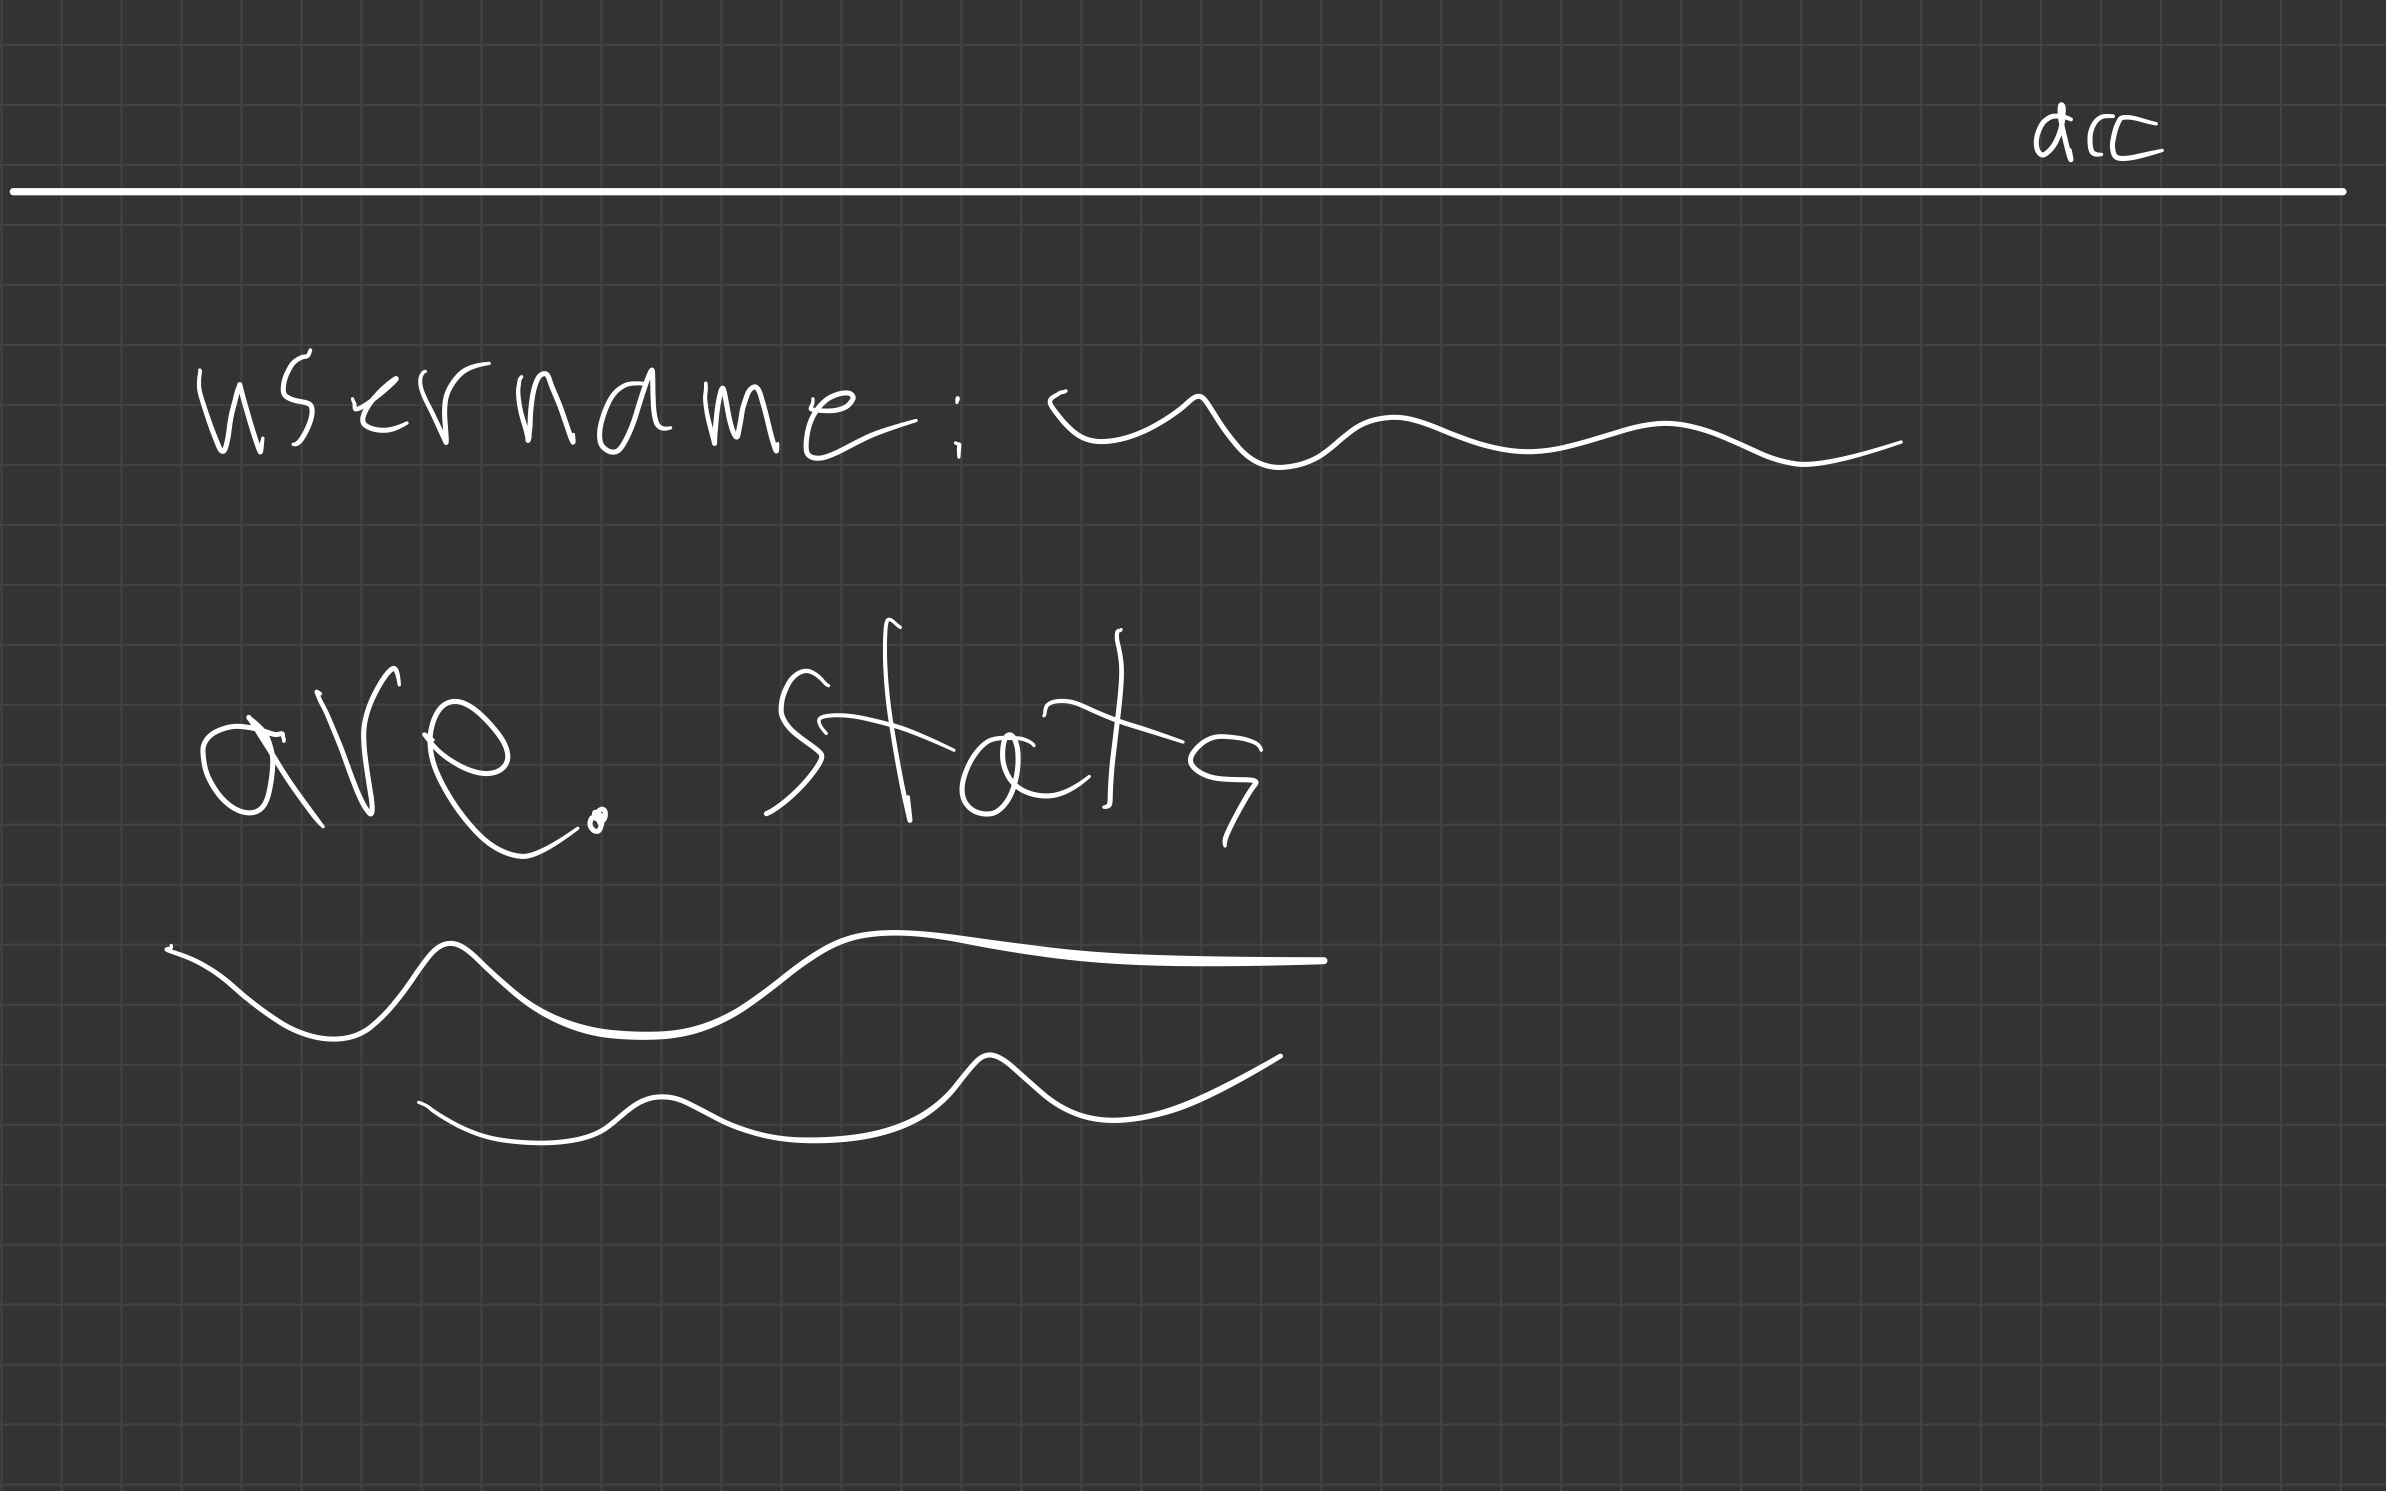 acc
username:
ave. stats